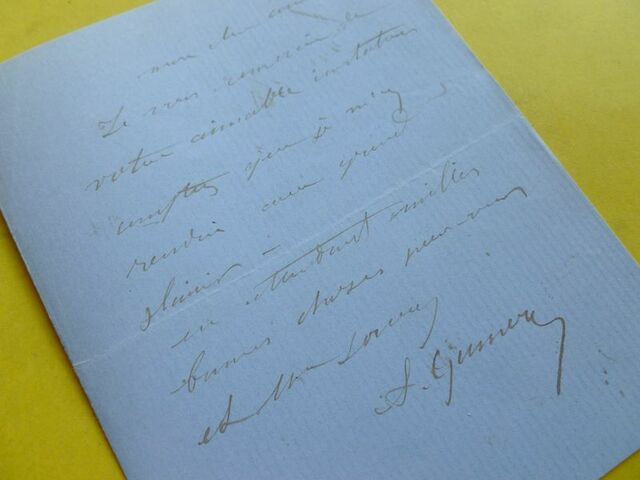 mon cher
Je vous remercie de
votre aimable invitation
comptez que je m'y
rendrai avec grand
plaisir -
en attendant mille
bonnes choses pour vous
et Mme